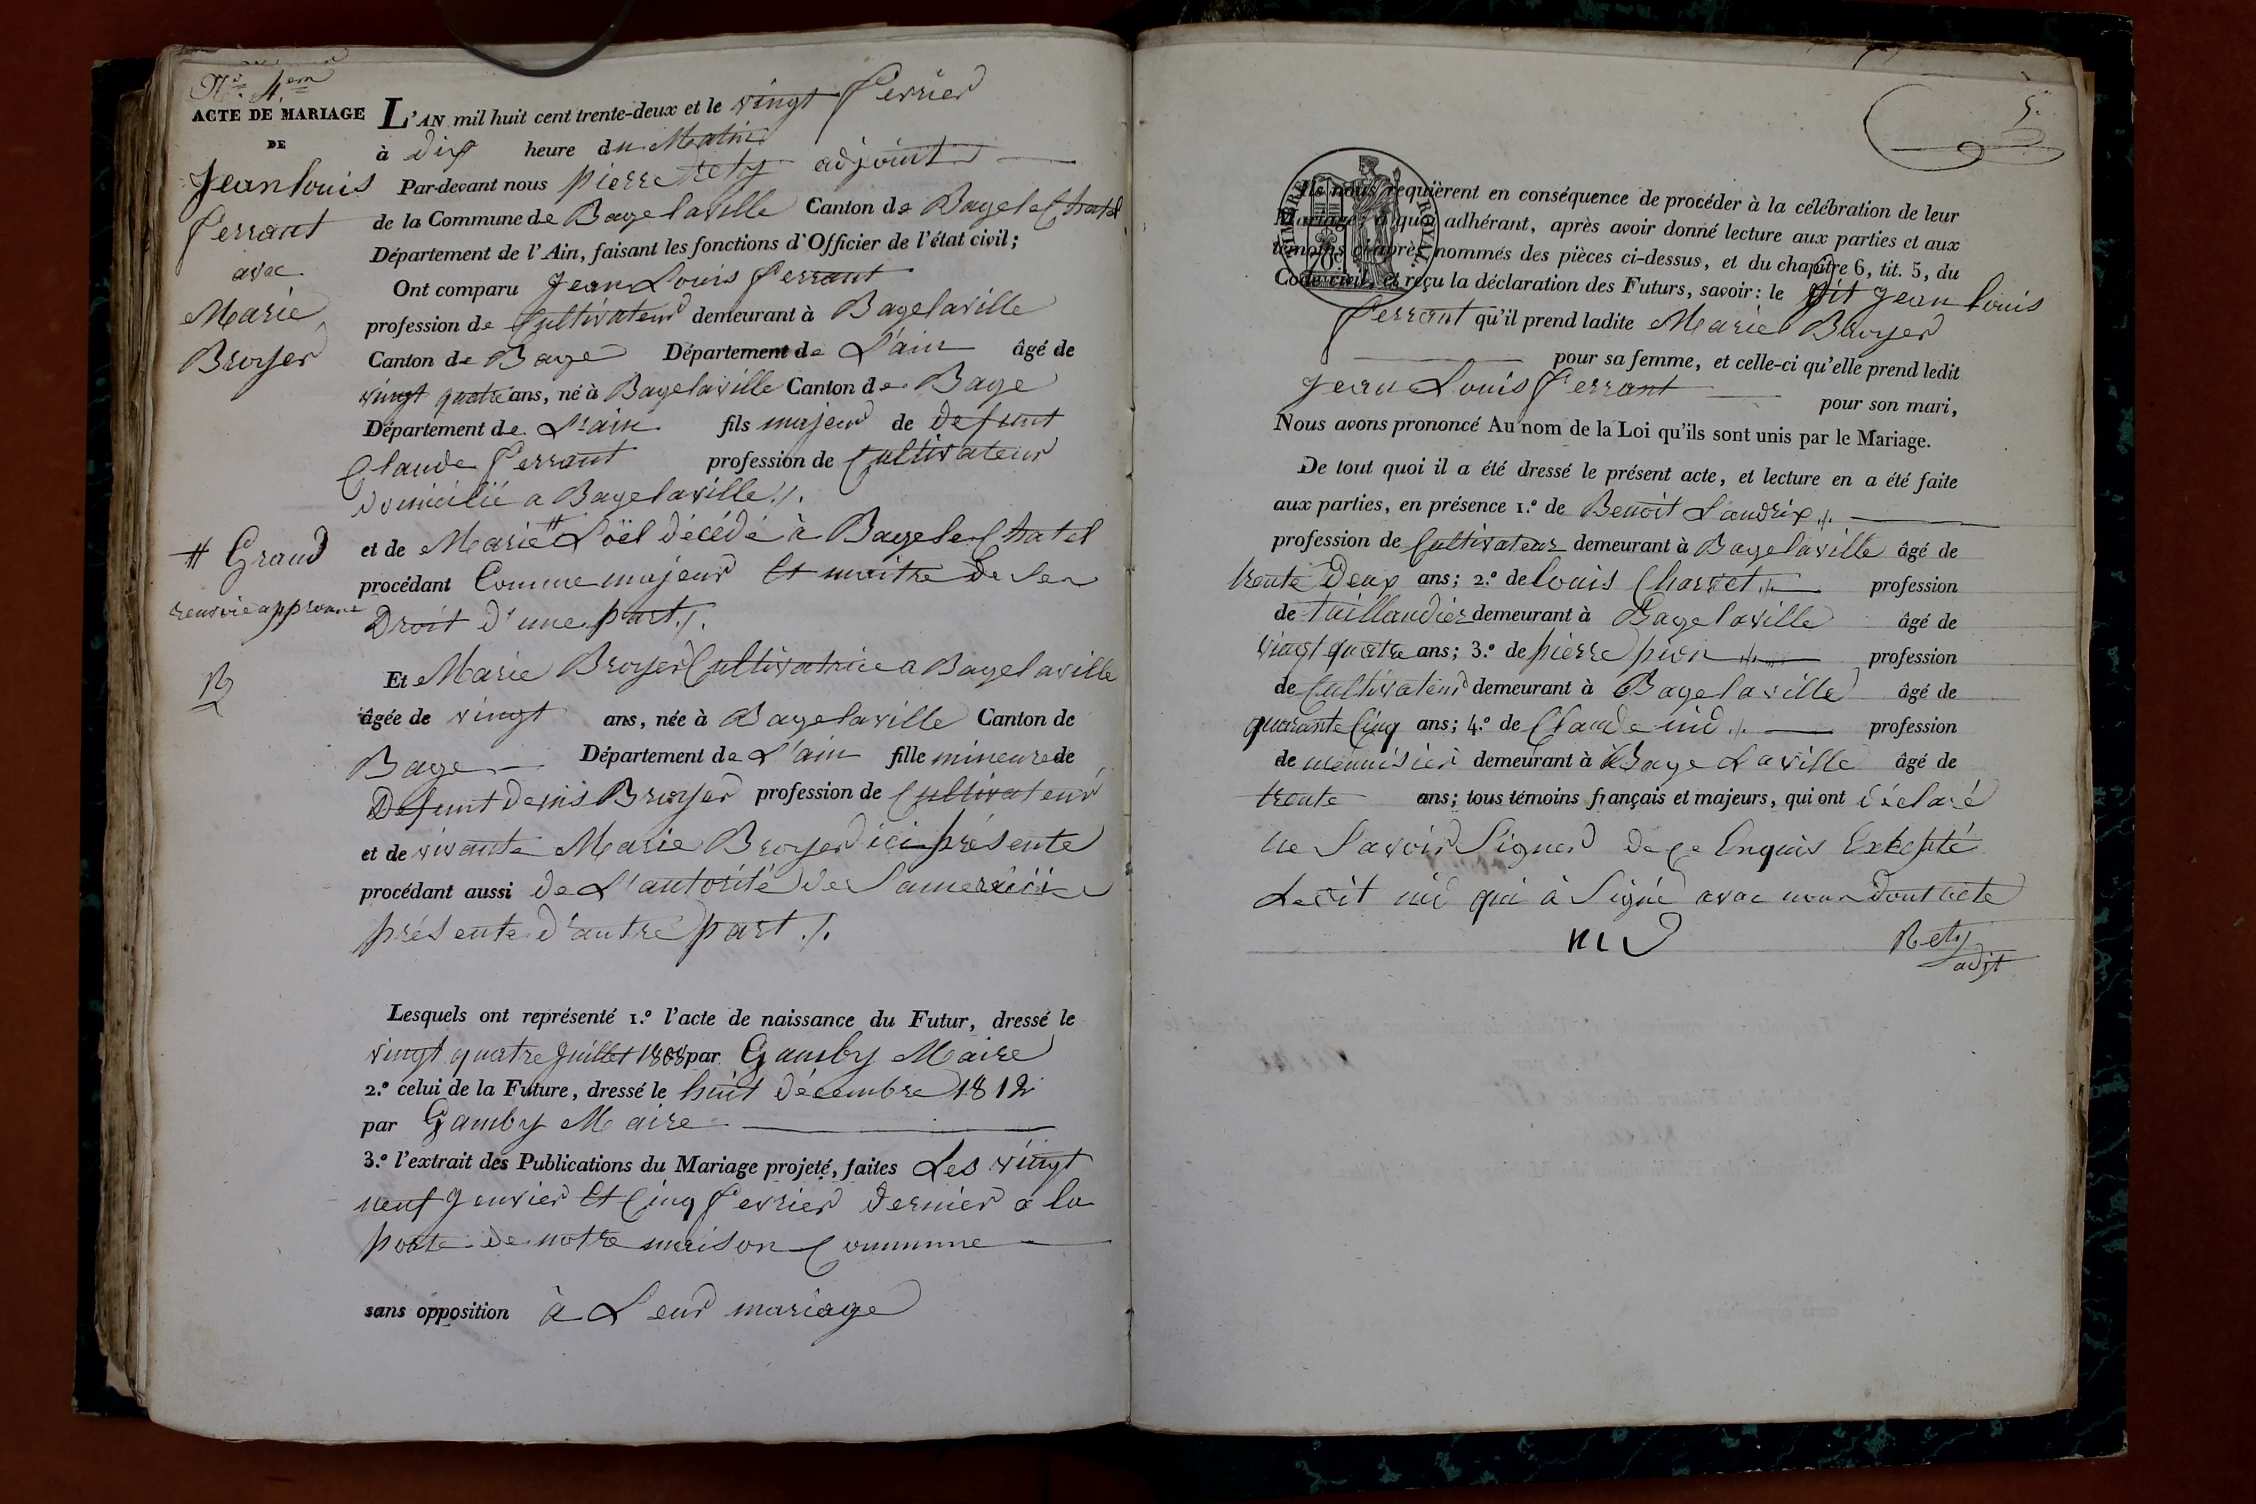 N.º 4.em
ACTE DE MARIAGE
DE
Jean louis
ferrant
avec
Marie
Broyer
# Grand
renvoie approuvé
L'AN mil huit cent trente-deux et le vingt fevrier
à dix heure du Matin
Par-devant nous pierre Rety adjoint
de la Commune de Bagelaville Canton de Bagele Chatel
Département de l'Ain, faisant les fonctions d'Officier de l'état civil;
Ont comparu Jean Louis ferrant
profession de Cultivateur demeurant à Bagelaville
Canton de Bage Département de L'ain âgé de
vingt quatre ans, né à Bagelaville Canton de Bage
Département de L'ain fils majeur de defunt
Claude ferrant profession de Cultivateur
domicilié a Bagelaville ./.
et de Marie # Loël décédé à Bagele Chatel
procédant Comme majeur Et maitre de Ses
Droit d'une part ./.
Et Marie Broyer Cultivatrice a Bagelaville
âgée de vingt ans, née à Bagelaville Canton de
Bage Département de L'ain fille mineure de
Defunt denis Broyer profession de Cultivateur
et de vivante Marie Broyer ici présente
procédant aussi de L'autorité de Samere ici
présente d'autre part ./.
Lesquels ont représenté 1.º l'acte de naissance du Futur, dressé le
vingt quatre Juillet 1808 par Gamby Maire
2.º celui de la Future, dressé le huit décembre 1812
par Gamby Maire
3.º l'extrait des Publications du Mariage projeté, faites Les vingt
neuf Janvier Et Cinq fevrier dernier a la
porte de notre maison Commune
sans opposition à Leur mariage
5.
TIMBRE ROYAL
Ils nous requièrent en conséquence de procéder à la célébration de leur
Mariage; à quoi adhérant, après avoir donné lecture aux parties et aux
témoins ci-après nommés des pièces ci-dessus, et du chapitre 6, tit. 5, du
Code civil, et reçu la déclaration des Futurs, savoir: le dit Jean louis
ferrant qu'il prend ladite Marie Broyer
pour sa femme, et celle-ci qu'elle prend ledit
Jean Louis ferrant pour son mari,
Nous avons prononcé Au nom de la Loi qu'ils sont unis par le Mariage.
De tout quoi il a été dressé le présent acte, et lecture en a été faite
aux parties, en présence 1.º de Benoit Landrix ./.
profession de Cultivateur demeurant à Bagelaville âgé de
trente Deux ans; 2.º de louis Charvet ./. profession
de taillandier demeurant à Bagelaville âgé de
vingt quatre ans; 3.º de pierre pion ./. profession
de Cultivateur demeurant à Bagelaville âgé de
quarante Cinq ans; 4.º de Claude nid ./. profession
de menuisier demeurant à Bage Laville âgé de
trente ans; tous témoins français et majeurs, qui ont déclaré
ne Savoir Signer de ce Enquis Excepté
Ledit nid qui à Signé avec nous dont acte
nid Rety
adjt